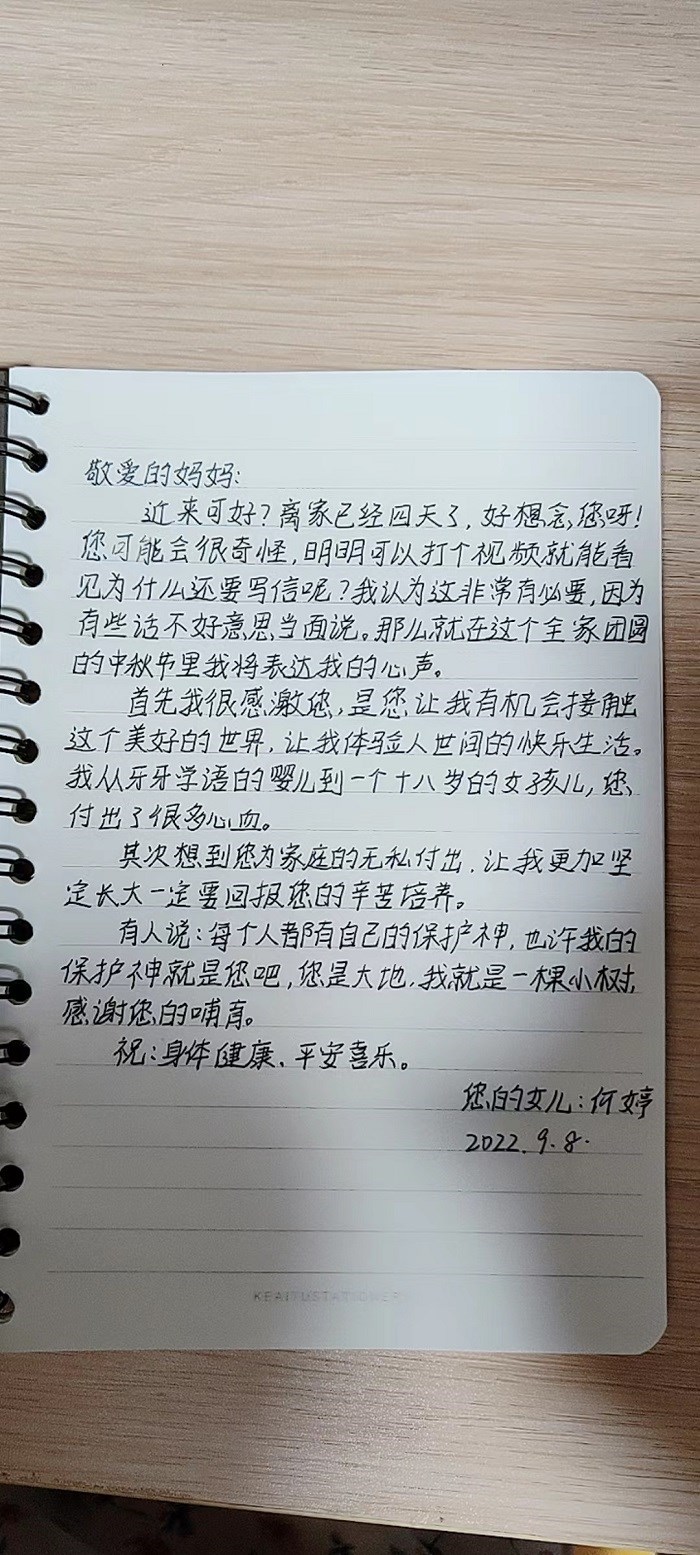 敬爱的妈妈:
近来可好?离家已经四天了,好想念您呀!
您可能会很奇怪,明明可以打个视频就能看
见为什么还要写信呢?我认为这非常有必要,因为
有些话不好意思当面说。那么就在这个全家团圆
的中秋节里我将表达我的心声。
首先我很感激您,是您让我有机会接触
这个美好的世界,让我体验人世间的快乐生活。
我从牙牙学语的婴儿到一个十八岁的女孩儿,您
付出了很多心血。
其次想到您为家庭的无私付出,让我更加坚
定长大一定要回报您的辛苦培养。
有人说:每个人都有自己的保护神,也许我的
保护神就是您吧,您是大地,我就是一棵小树,
感谢您的哺育。
祝:身体健康、平安喜乐。
您的女儿:何婷
2022.9.8.
KEAITUSTATIONERY